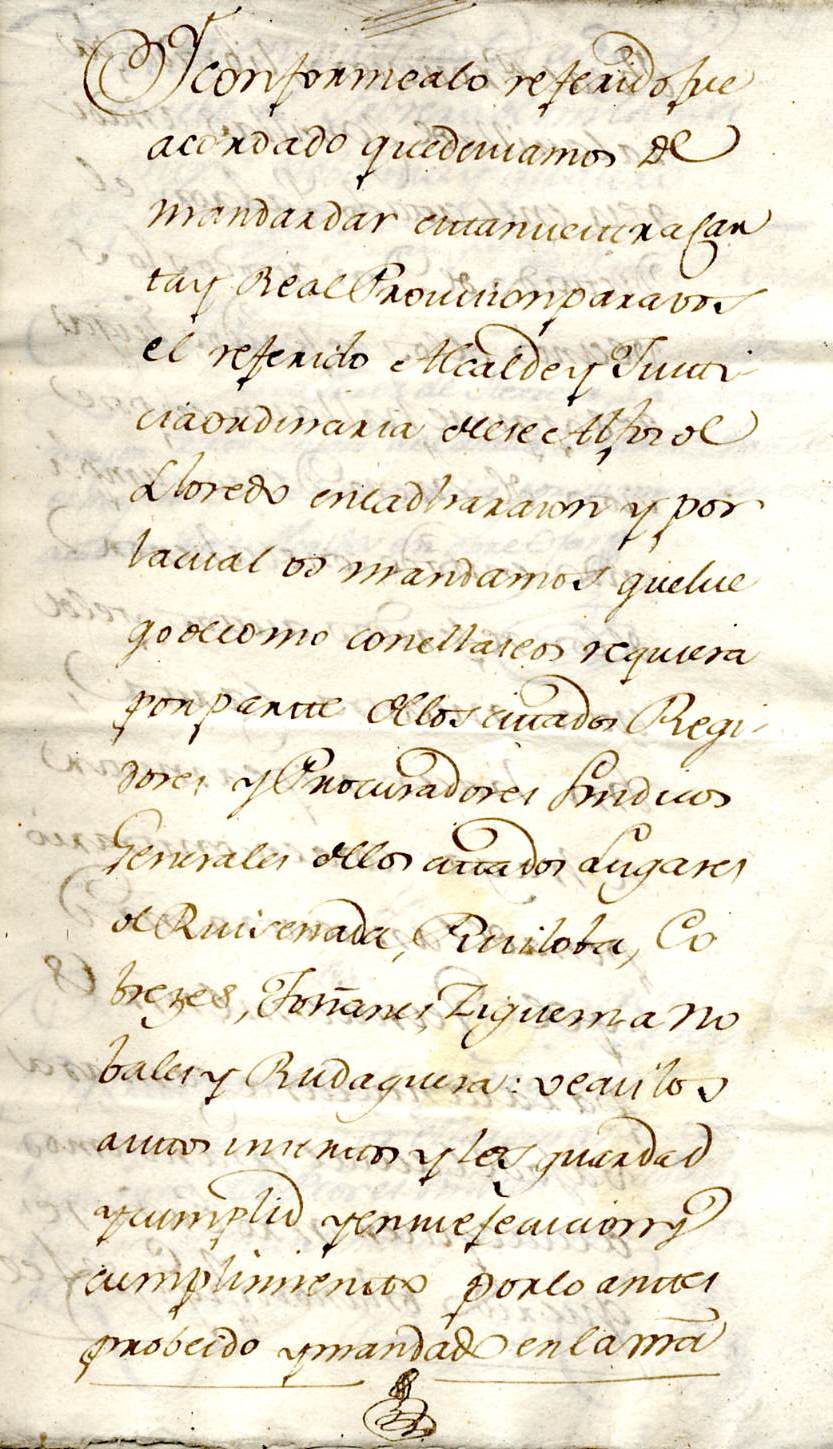 Yconformealo referido fue
acordado quedeviamos de
mandardar estanuestra Car
tay Real Provision paravos
el referido Alcalde y Justi
ciaordinaria deese Alfoz de
Lloredo enladharazon y por
lacual os mandamos quelue
godecomo conellaseos requiera
porpartte dellos cittados Regi
dores y Procuradores Sindicos
Generales dellos cittados Lugares
de Ruisenada, Ruiloba, Co
brezes, Toñanes, Ziguenza No
bales y Rudaguera: veais los
auttos insertos y les guardad
ycumplid yensuejecucion y
cumplimiento porlo anttes
probeido ymandado enlamã